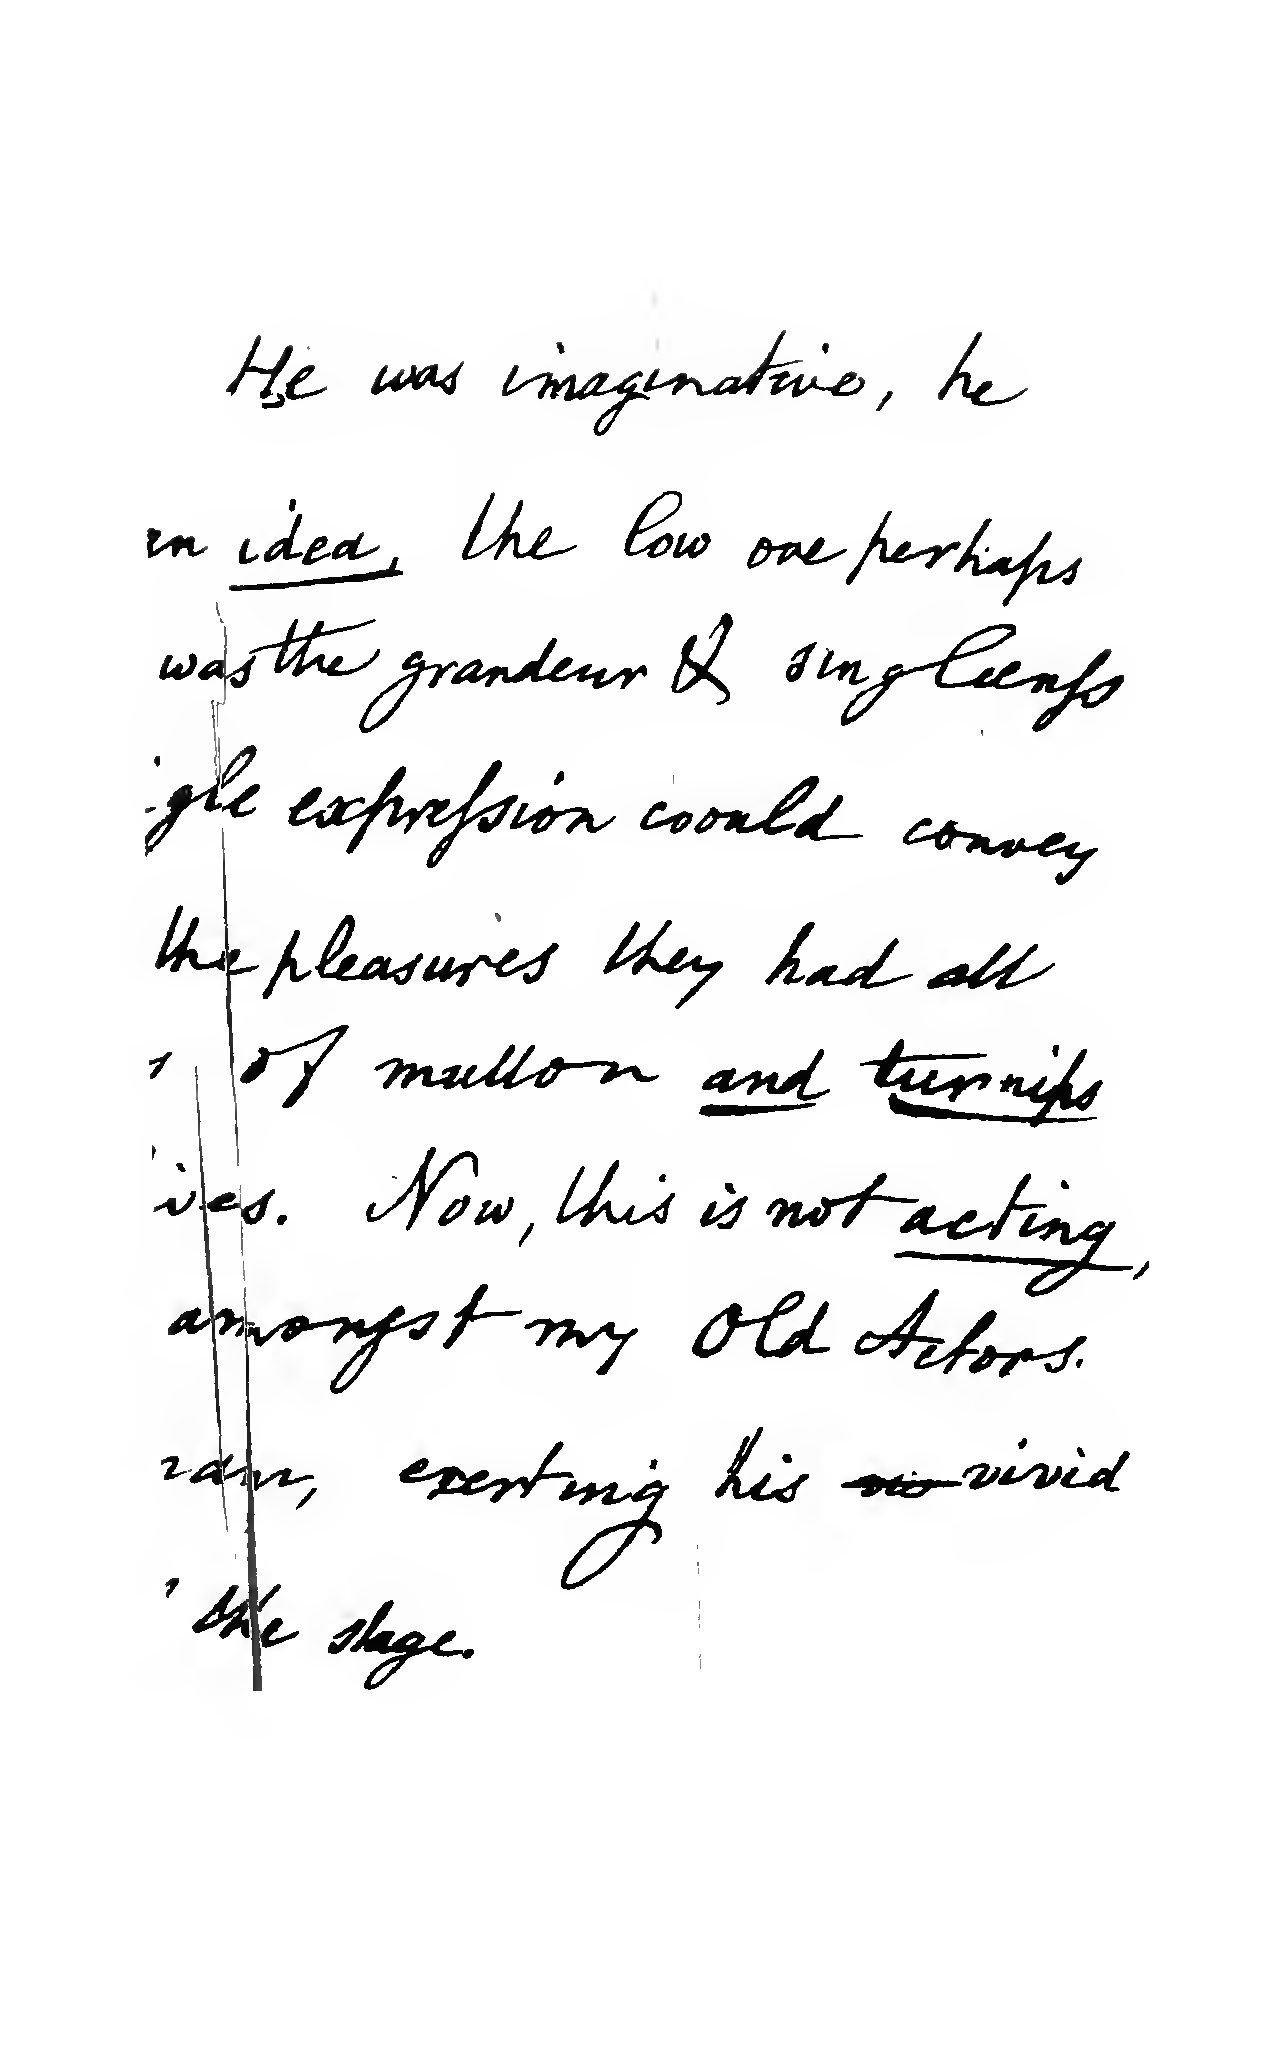 He was imaginative, he
idea, the low one perhaps
was the grandeur & singleneſs
gle expreſsion coould convey
the pleasures they had all
of mutton and turnips
ives. Now, this is not acting,
amongst my Old Actors.
exerting his vis vivid
the stage.